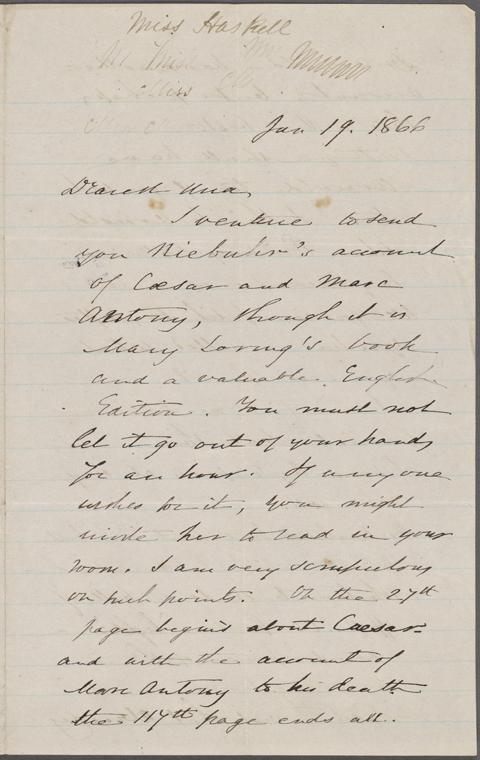 Miss Haskell
Miss
Jan 19. 1866
Dearest Una,
I venture to send
you Niebuhr's account
of Cæsar and Marc
Antony, though it is
Mary Loring's book
and a valuable English
Edition. You must not
let it go out of your hands
for an hour. If any one
wishes for it, you might
invite her to read in your
room. I am very scrupulous
on such points. On the 27th
page begins about Cæsar
and with the account of
Marc Antony to his death
the 117th page ends all.